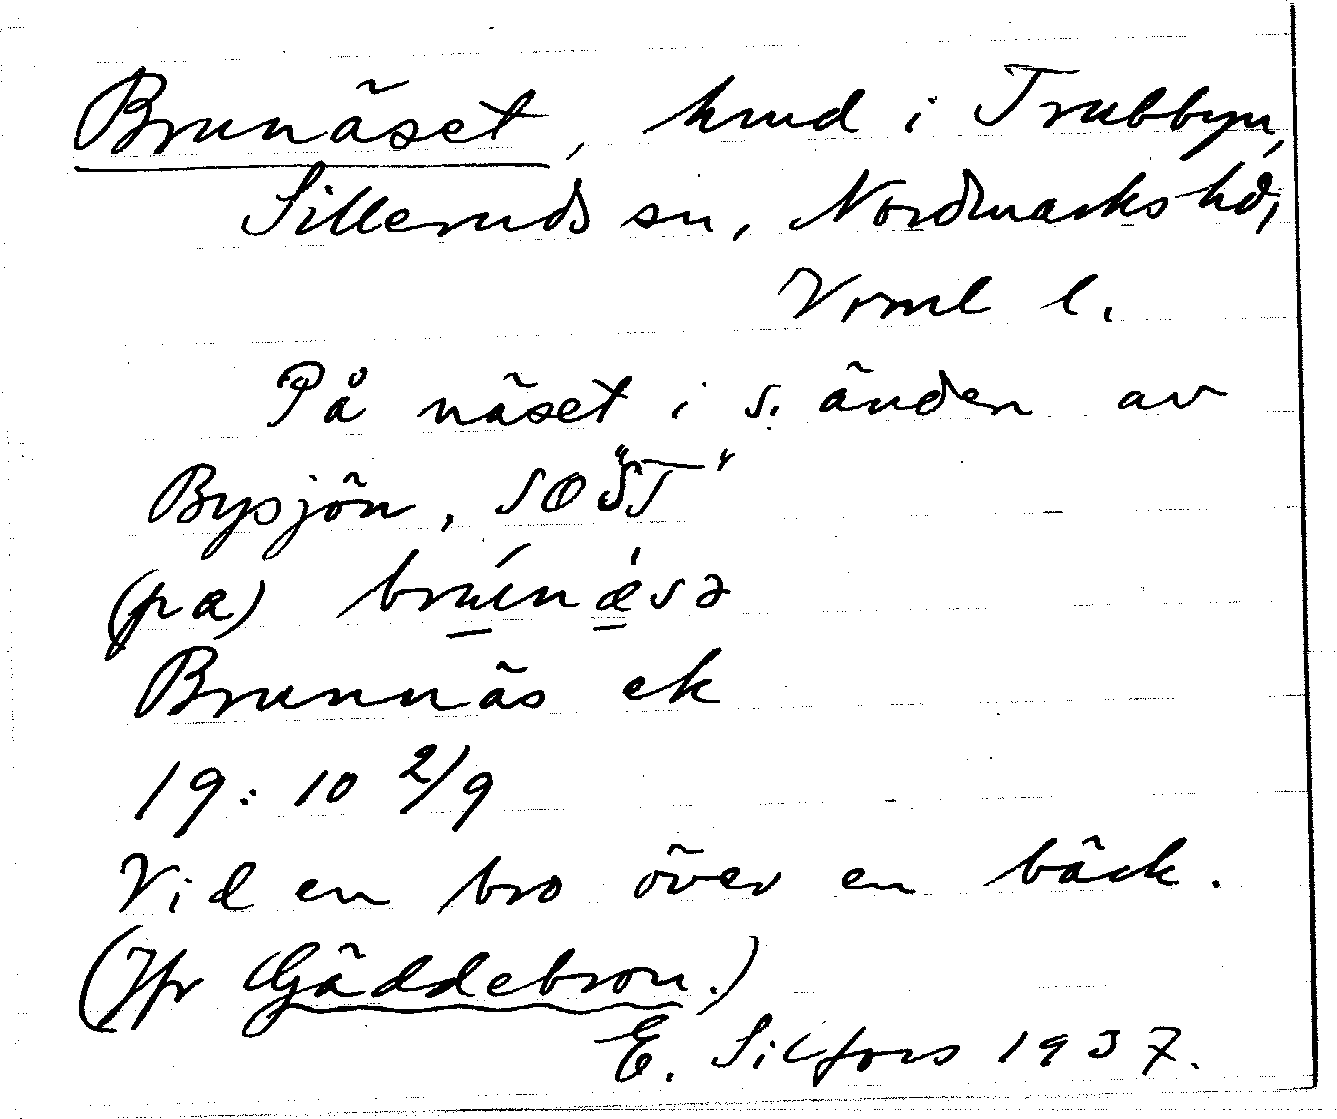 Brunäset, hmd i Trubbyn,
Silleruds sn, Nordmarks hd,
Vrml l.
På näset i s. änden av
Bysjön, SO "ST"
(pa) brúnæ̀sə
Brunnäs ek
19:10 2/9
Vid en bro över en bäck.
(Jfr Gäddebron.)
E. Silfors 1937.